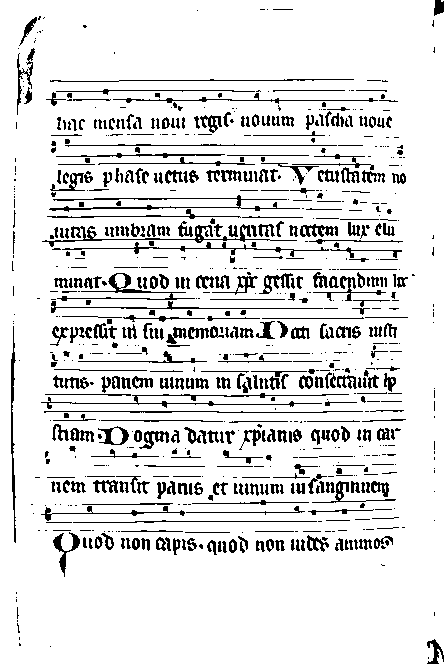 hac mensa noui regis. nouum pascha noue
legis phase uetus terminat. Vetustatem no
uitas umbram fugat ueritas noctem lux elu
minat. Quod in cena xpc gessit faciendum hec
expressit in sui memoriam. Docti sacris insti
tutis. panem uinum in salutis consecrauit
stiam. Dogma datur xpianis quod in car
nem transit panis et uinum in sanguinem
Quod non capis. quod non uides animosa